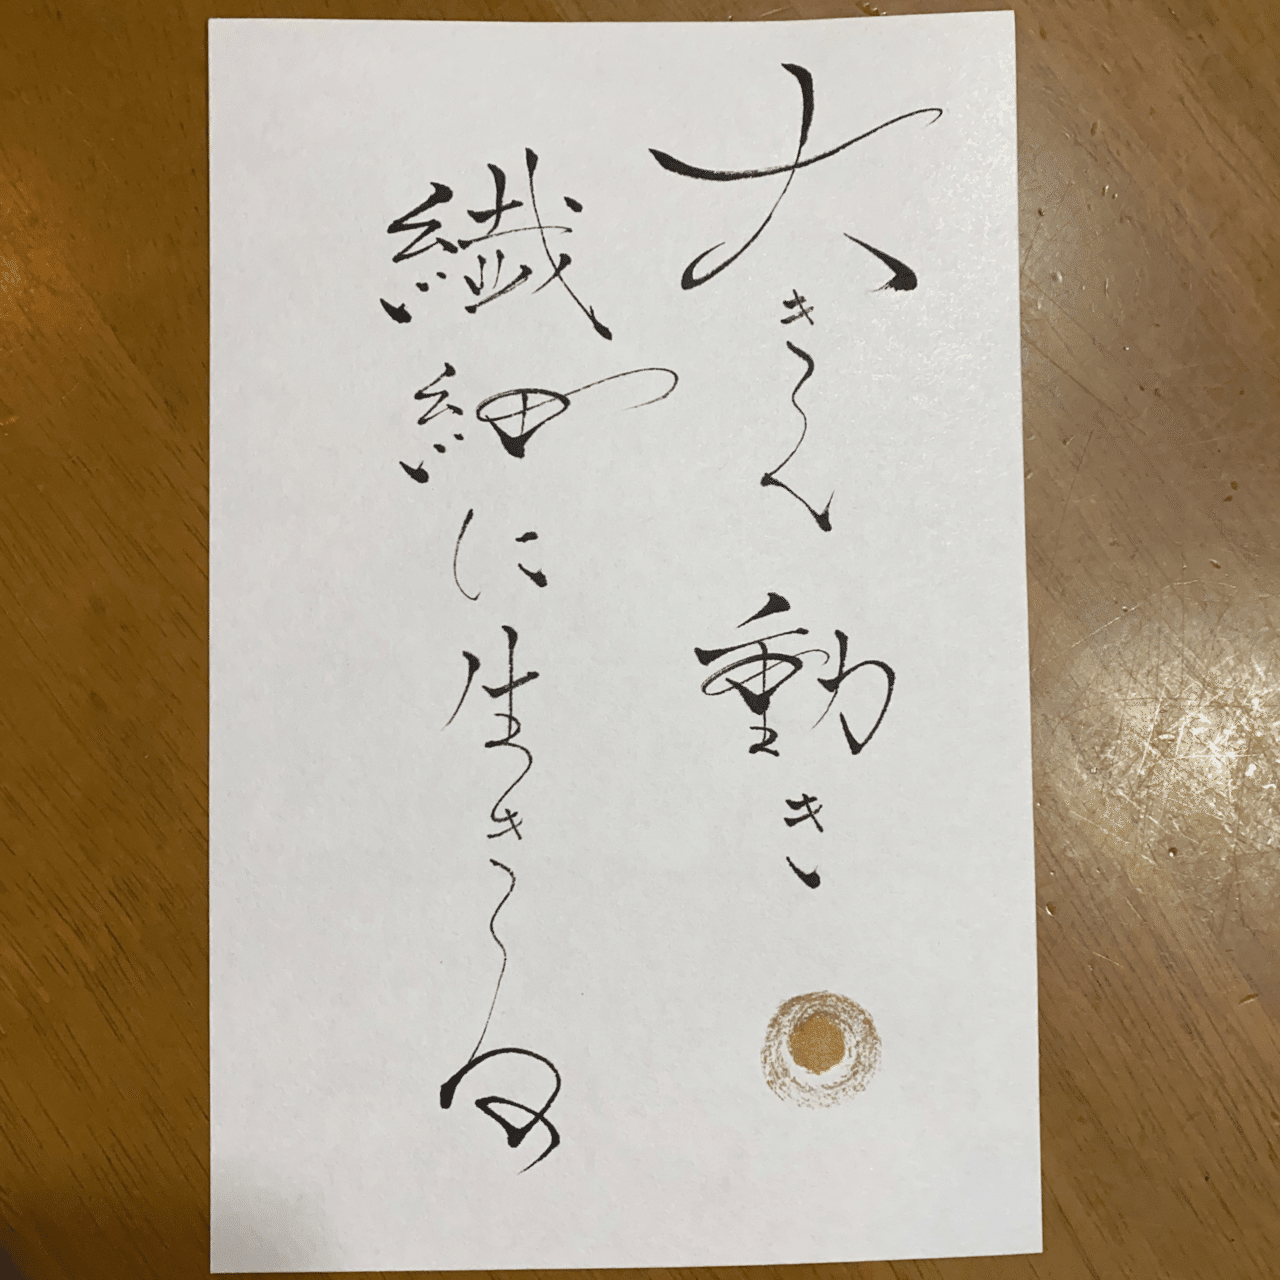 大きく動き
繊細に生きる